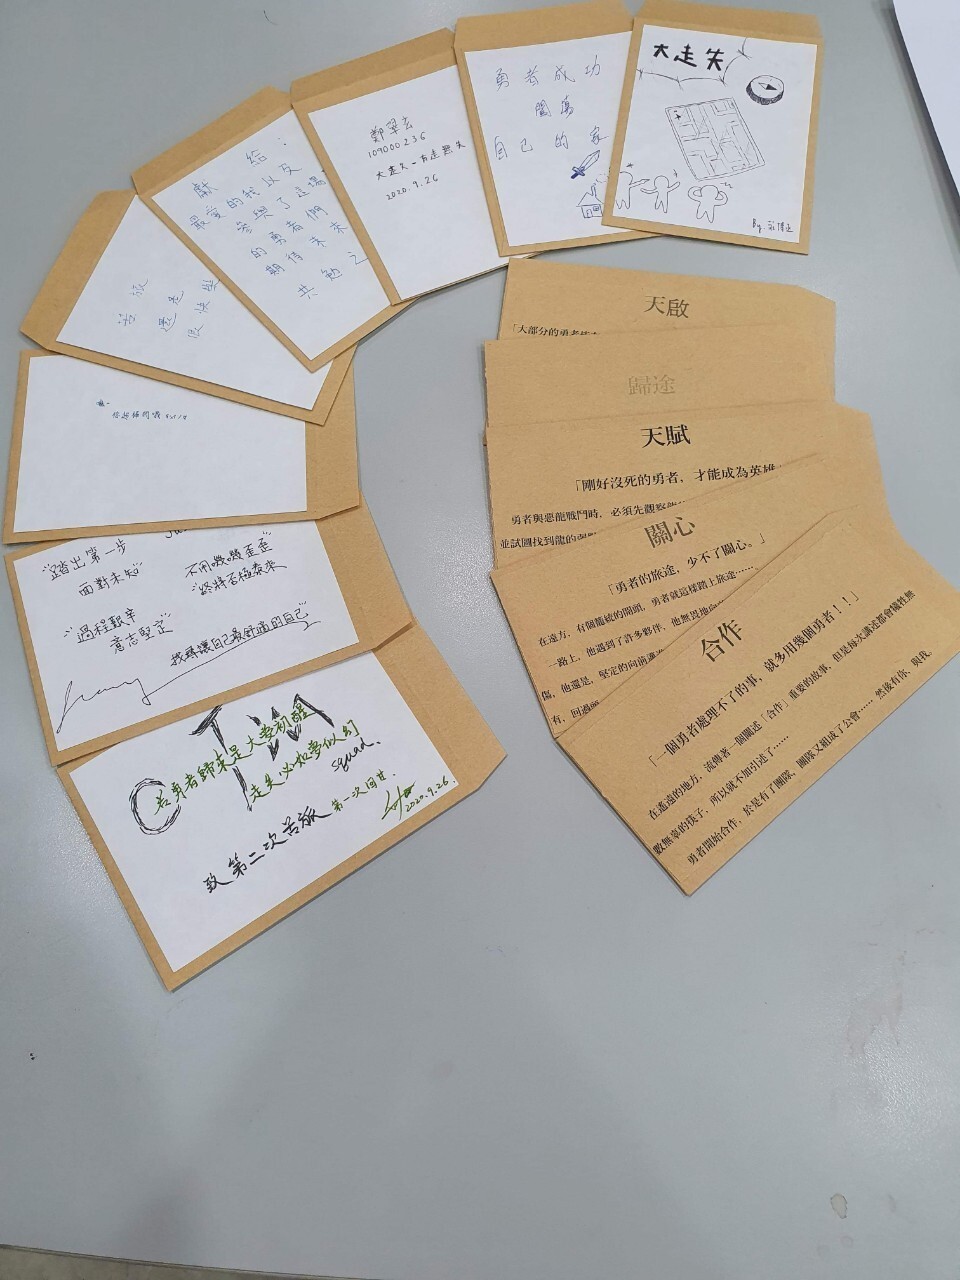 大走失
By.
勇者成功
闖蕩
自己的家
109000236
大走失一方走無失
2020.9.26
獻給：
最愛的我以及
參與了這場
的勇者們
期待未來
共勉之
苦旅
還是
很快樂
"踏出第一步
面對未知"
"不用嘰嘰歪歪
終將否極泰來"
"過程艱辛
意志堅定"
找尋讓自己最舒適的自己
若勇者歸來是大夢初醒
走失必如夢似幻
squad.
致第二次苦旅
第一次回甘.
2020.9.26.
天啟
「大部分的勇者
歸途
天賦
「剛好沒死的勇者，才能成為英雄
勇者與惡龍戰鬥時，必須先觀察
並試圖找到龍的
關心
「勇者的旅途，少不了關心。」
在遠方，有個籠統的開頭，勇者就這樣踏上旅途……
一路上，他遇到了許多夥伴，他無畏地向
傷，他還是，堅定的向前邁
有，回過
合作
「一個勇者處理不了的事，就多用幾個勇者！！」
在遙遠的地方，流傳著一個闡述「合作」重要的故事，但是每次講述都會犧牲無
數無辜的筷子，所以就不加引述了……
勇者開始合作，於是有了團隊，團隊又組成了公會…… 然後有你、與我。